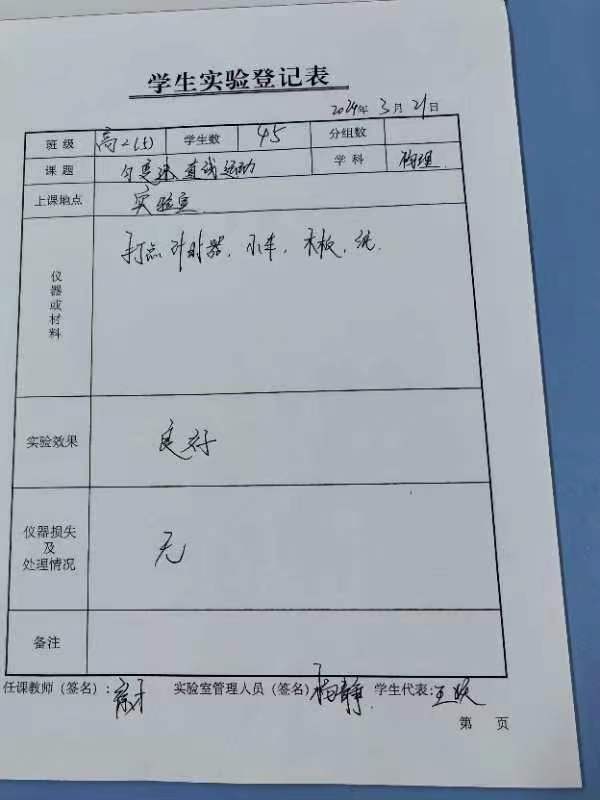 学生实验登记表
2024年 3月 21日
班级 高一(5) 学生数 45 分组数
课题 匀变速直线运动 学科 物理
上课地点 实验室
仪器或材料 打点计时器、小车、木板、纸
实验效果 良好
仪器损失及处理情况 无
备注
任课教师（签名）: 实验室管理人员（签名） 杨静 学生代表: 王
第 页